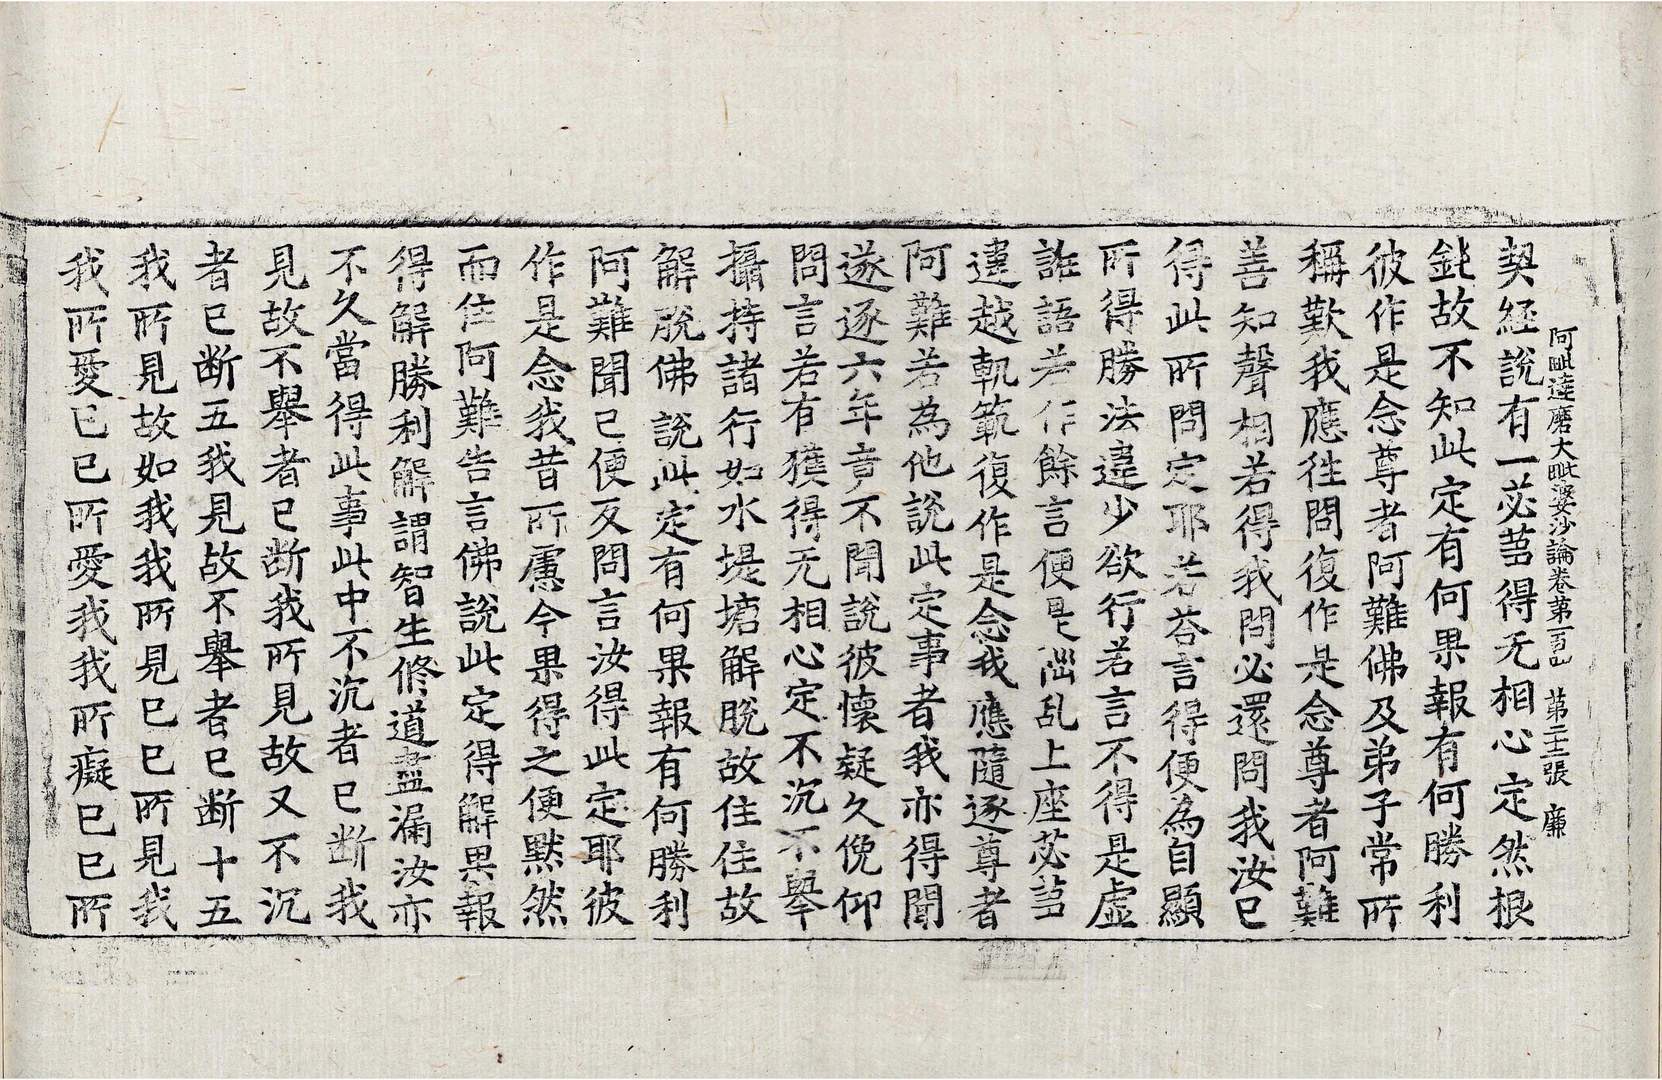 阿毗達磨大毗婆沙論卷第一百四 第二十二張 廉
契經說有一苾芻得无相心定然根
鈍故不知此定有何果報有何勝利
彼作是念尊者阿難佛及弟子常所
稱歎我應往問復作是念尊者阿難
善知聲相若得我問必還問我汝已
得此所問定耶若荅言得便為自顯
所得勝法違少欲行若言不得是虛
誑語若作餘言便是惱乱上座苾芻
違越軌範復作是念我應隨逐尊者
阿難若為他說此定事者我亦得聞
遂逐六年竟不聞說彼懷疑久俛仰
問言若有獲得无相心定不沉不舉
攝持諸行如水堤塘解脫故住住故
解脫佛說此定有何果報有何勝利
阿難聞已便反問言汝得此定耶彼
作是念我昔所慮今果得之便默然
而住阿難告言佛說此定得解果報
得解勝利解謂智生修道盡漏汝亦
不久當得此事此中不沉者已断我
見故不舉者已断我所見故又不沉
者已断五我見故不舉者已断十五
我所見故如我我所見已已所見我
我所愛已已所愛我我所癡已已所